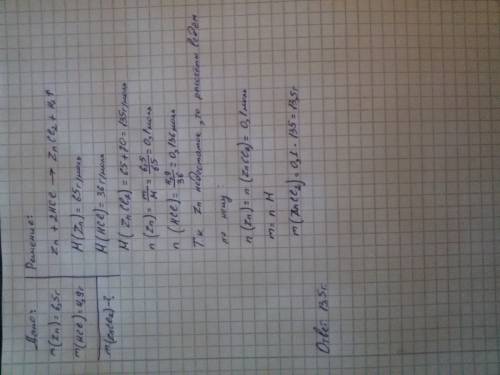 Дано:
m(Zn) = 6,5г
m(HCl) = 4,9г
m(ZnCl₂) - ?
Решение:
Zn + 2HCl → ZnCl₂ + H₂↑
M(Zn) = 65 г/моль
M(HCl) = 36 г/моль
M(ZnCl₂) = 65 + 70 = 135 г/моль
n(Zn) = m/M = 6,5/65 = 0,1 моль
n(HCl) = 4,9/36 = 0,136 моль
Т.к Zn недостаток, то расчёты ведём
по нему:
n(Zn) = n(ZnCl₂) = 0,1 моль
m = n M
m(ZnCl₂) = 0,1 · 135 = 13,5г
Ответ: 13,5г.